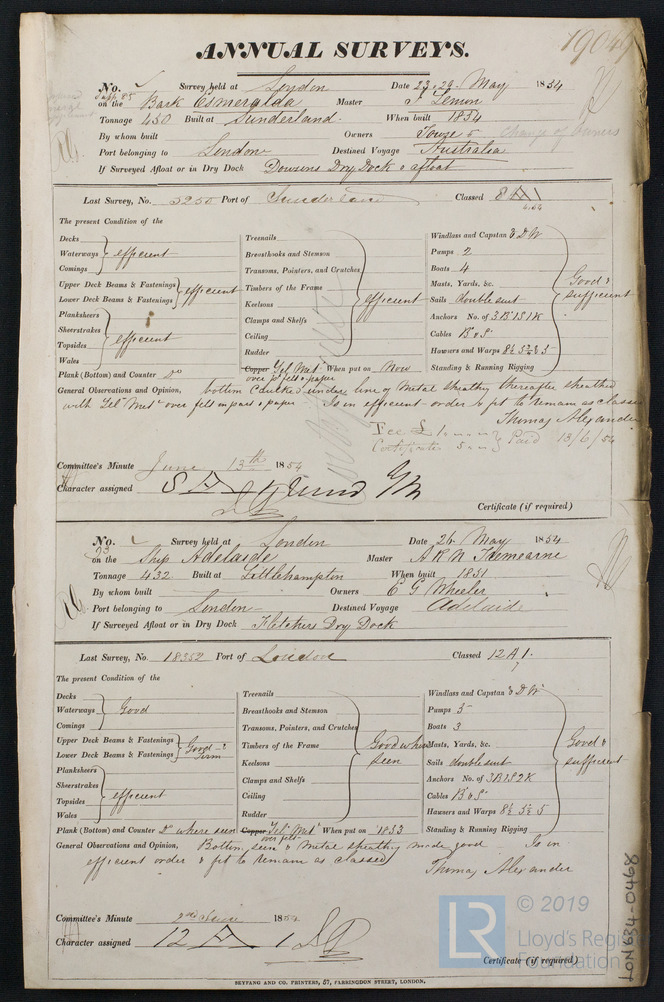 ANNUAL SURVEYS.
19049
No. Survey held at London Date 23, 29 May 1854
on the Bark Esmeralda Master J Lemon
Tonnage 450 Built at Sunderland When built 1834
By whom built Owners Change of Owners
Port belonging to London Destined Voyage Australia
If Surveyed Afloat or in Dry Dock Dowsons Dry Dock & afloat
Last Survey, No. 5250 Port of Sunderland Classed 8 A 1
The present Condition of the
Decks
Waterways efficient
Comings
Upper Deck Beams & Fastenings
Lower Deck Beams & Fastenings efficient
Planksheers
Sheerstrakes
Topsides efficient
Wales
Plank (Bottom) and Counter Do
Treenails
Breasthooks and Stemson
Transoms, Pointers, and Crutches
Timbers of the Frame
Keelsons efficient
Clamps and Shelfs
Ceiling
Rudder
Copper Yel Met When put on Now
over felt & paper
Windlass and Capstan & D W
Pumps 2
Boats 4
Masts, Yards, &c. Good &
Sails double suit sufficient
Anchors No. of 3 B 1 S 1 K
Cables B & S
Hawsers and Warps
Standing & Running Rigging
General Observations and Opinion, bottom caulked under line of Metal sheathg thereafter sheathed
with Yel Met over felt in part & paper Is in efficient order & fit to remain as classed
Thomas Alexander
Fee £1
Certificate 5 Paid 13/6/54
Committee's Minute June 13th 1854
Character assigned 8 A 1
Certificate (if required)
No. Survey held at London Date 26 May 1854
on the Ship Adelaide Master
Tonnage 432 Built at Littlehampton When built 1831
By whom built Owners C G Wheeler
Port belonging to London Destined Voyage Adelaide
If Surveyed Afloat or in Dry Dock Fletchers Dry Dock
Last Survey, No. 18352 Port of London Classed 12 A 1.
The present Condition of the
Decks
Waterways Good
Comings
Upper Deck Beams & Fastenings Good &
Lower Deck Beams & Fastenings Firm
Planksheers
Sheerstrakes
Topsides efficient
Wales
Plank (Bottom) and Counter Do where seen
Treenails
Breasthooks and Stemson
Transoms, Pointers, and Crutches
Timbers of the Frame Good where
Keelsons seen
Clamps and Shelfs
Ceiling
Rudder
Copper Yel Met When put on 1853
over felt
Windlass and Capstan & D W
Pumps 3
Boats 3
Masts, Yards, &c. Good &
Sails double suit sufficient
Anchors No. of 3 B 1 S 2 K
Cables B & S
Hawsers and Warps
Standing & Running Rigging
General Observations and Opinion, Bottom seen & metal sheathg made good Is in
efficient order & fit to remain as classed
Thomas Alexander
Committee's Minute 2nd June 1854
Character assigned 12 A 1
Certificate (if required)
SEYFANG AND CO. PRINTERS, 57, FARRINGDON STREET, LONDON.
LON634-0468
LR
© 2019
Lloyd's Register
Foundation